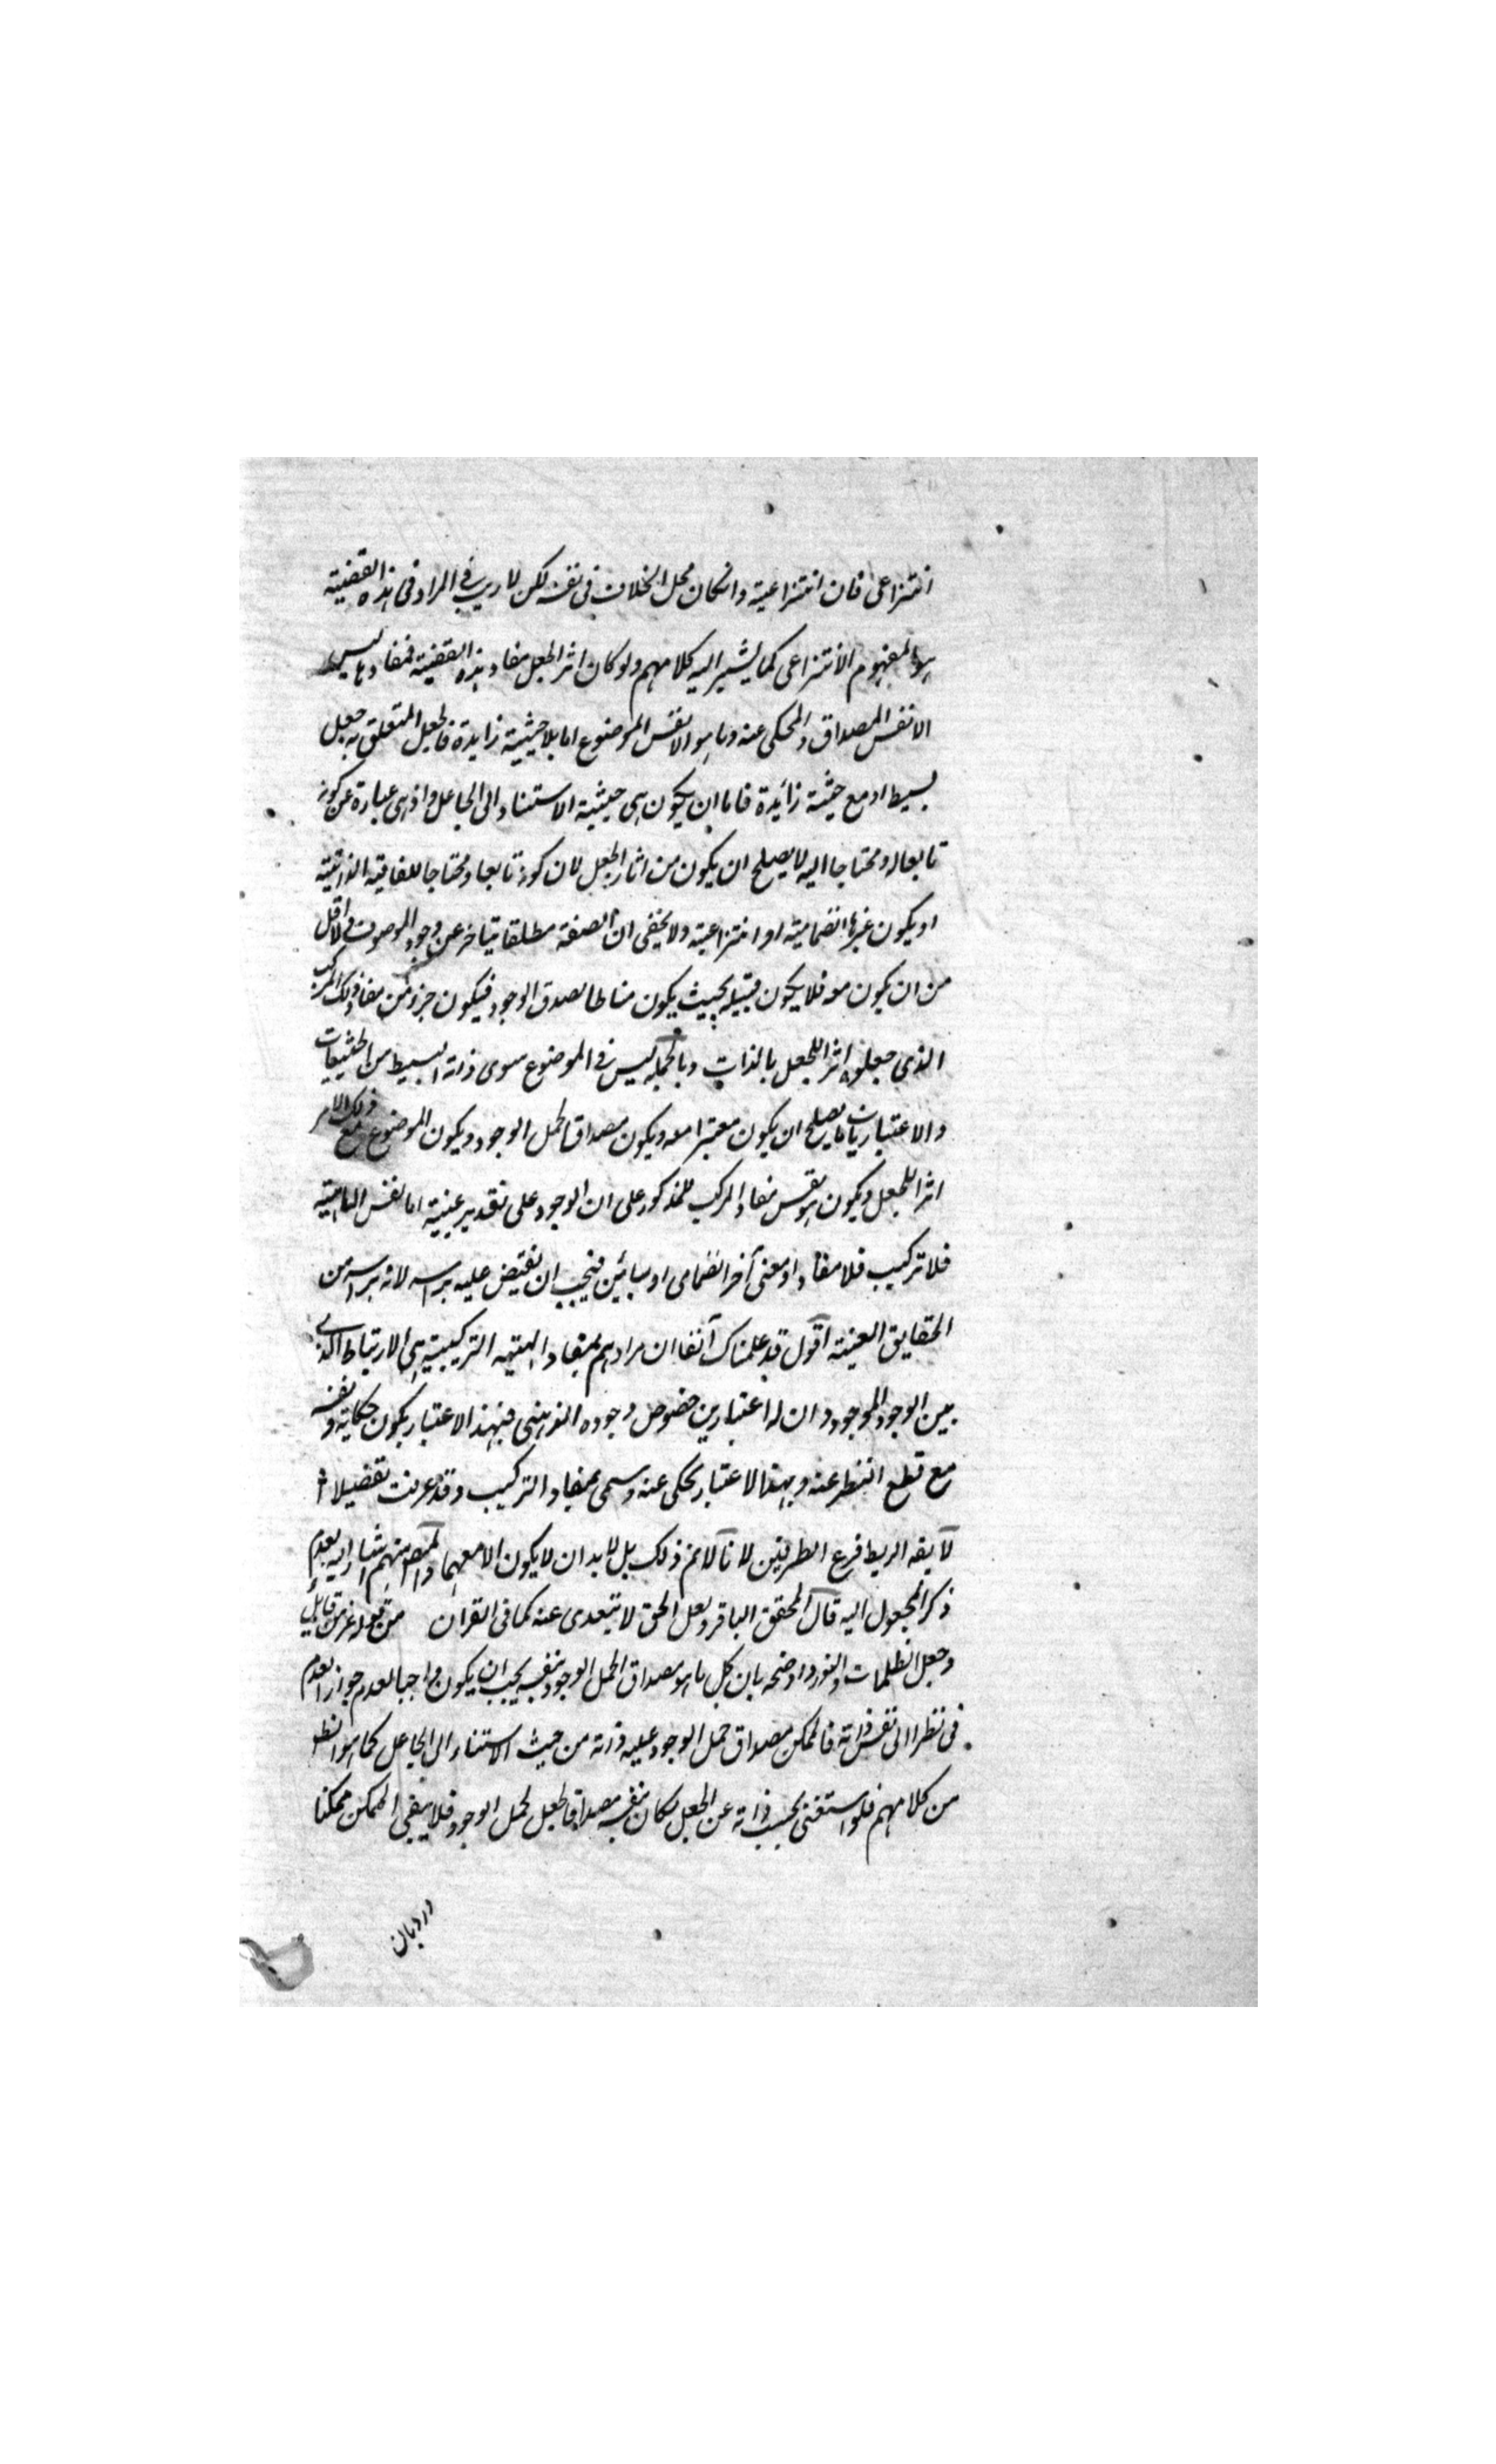 انتزاعى فان انتزاعية وانكان محل الخلاف فى نفسه لكن لا ريب فى المراد فى هذه القضية
هو المفهوم الانتزاعى كما يشير اليه كلامهم ولو كان اثر الجعل مفاد هذه القضية فمفادها ليس
الا نفس المصداق والمحكى عنه وما هو الا نفس الموضوع اما بلا حيثية زايدة فالجعل المتعلق به جعل
بسيط او مع حيثية زائدة فاما ان يكون هى حيثية الاستناد الى الجاعل واذ هى عبارة عن كونه
تابعا له ومحتاجا اليه لا يصلح ان يكون من اثار الجعل لان كونه تابعا ومحتاجا للفاقة الذاتية
او يكون غيرها انضمامية او انتزاعية ولا يخفى ان الصفة مطلقا يتاخر عن وجود الموصوف ولا اقل
من ان يكون معه فلا يكون قبيله بحيث يكون مناطا لصدق الوجود فيكون جزء من مفاد ذلك المركب
الذى جعلوه اثر اللجعل بالذات وبالجملة ليس فى الموضوع سوى ذاته البسيط من الحيثيات
والاعتباريات ما يصلح ان يكون معتبرا معه ويكون مصداقا لحمل الوجود ويكون الموضوع مع ذلك الامر
اثر اللجعل ويكون هو نفس مفاد المركب المذكور على ان الوجود على تقدير عينية اما نفس الماهية
فلا تركيب فلا مفاد او معنى آخر انضمامى او مبائن فيجب ان يفيض عليه براسه لانه براسه من
الحقايق العينية اقول قد علمناك آنفا ان مرادهم بمفاد الهيئة التركيبية هى الارتباط الذى
بين الوجود والموجود وان له اعتبارين خصوص وجوده الذهنى فبهذا الاعتبار يكون حكاية ونفسه
مع قطع النظر عنه وبهذا الاعتبار يحكى عنه وسمى بمفاد التركيب وقد عرفت تفضيلا
لا يقه الربط فرع الطرفين لانا لانم ذلك بل لا بد ان لا يكون الا معهما منهم اشار اليه بعدم
ذكر المجعول اليه قال المحقق الباقر ولعل الحق لا يتعدى عنه كما فى القران من قوله عز من قايل
وجعل الظلمات والنور واوضحه بان كل ما هو مصداق الحمل الوجود بنفسه يجب ان يكون واجبا لعدم جواز العدم
فى نظر الى نفس ذاته فالممكن مصداق حمل الوجود عليه ذاته من حيث الاستناد الى الجاعل كما هو الظ
من كلامهم فلو استغنى بحسب ذاته عن الجعل لكان بنفسه مصداقا لجعل لحمل الوجود فلا يبقى الممكن ممكنا